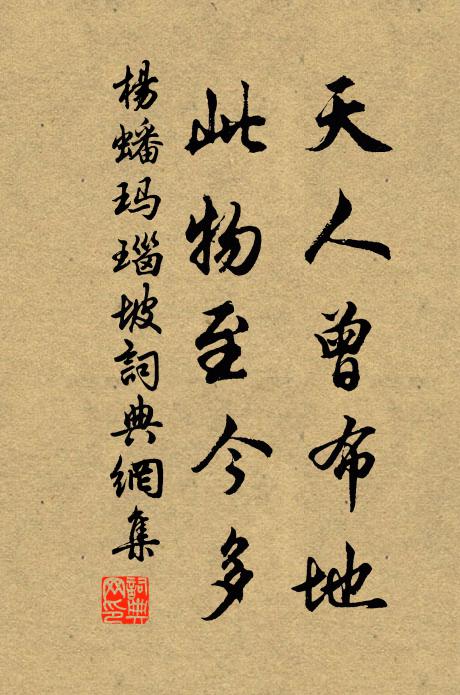 天人曾布地
此物至今多
楊蟠玛瑙坡詞典網集
詞典网印